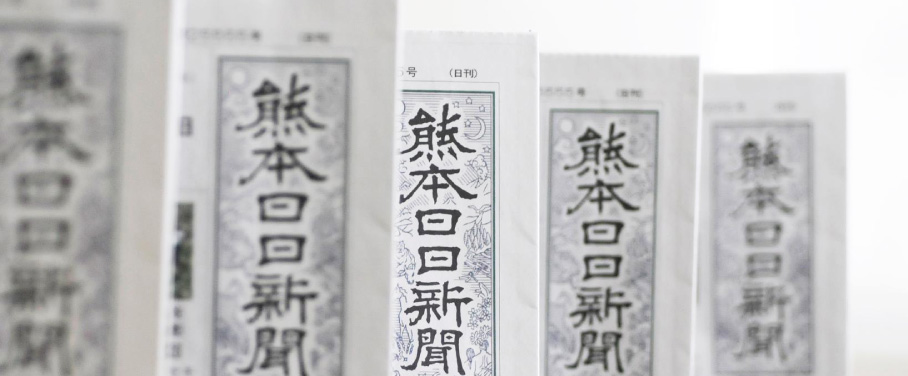 熊本日日新聞
熊本日日新聞
号 (日刊)
熊本日日新聞
熊本日日新聞
熊本日日新聞